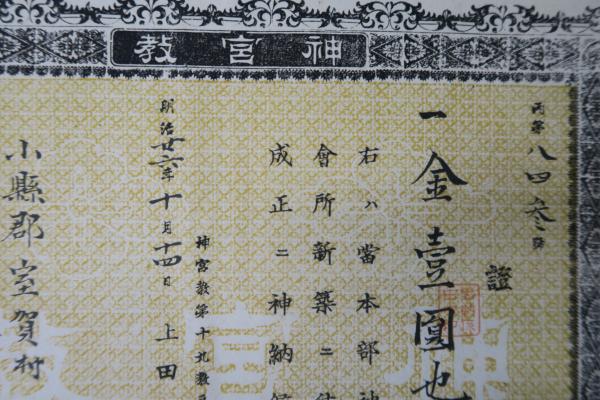 神宮教
丙第八四参號
證
一金壹圓也
右ハ當本部神
會所新築ニ付
成正ニ神納候
明治廿六年十月十四日
神宮教第十九教
上田
小縣郡室賀村
神宮教